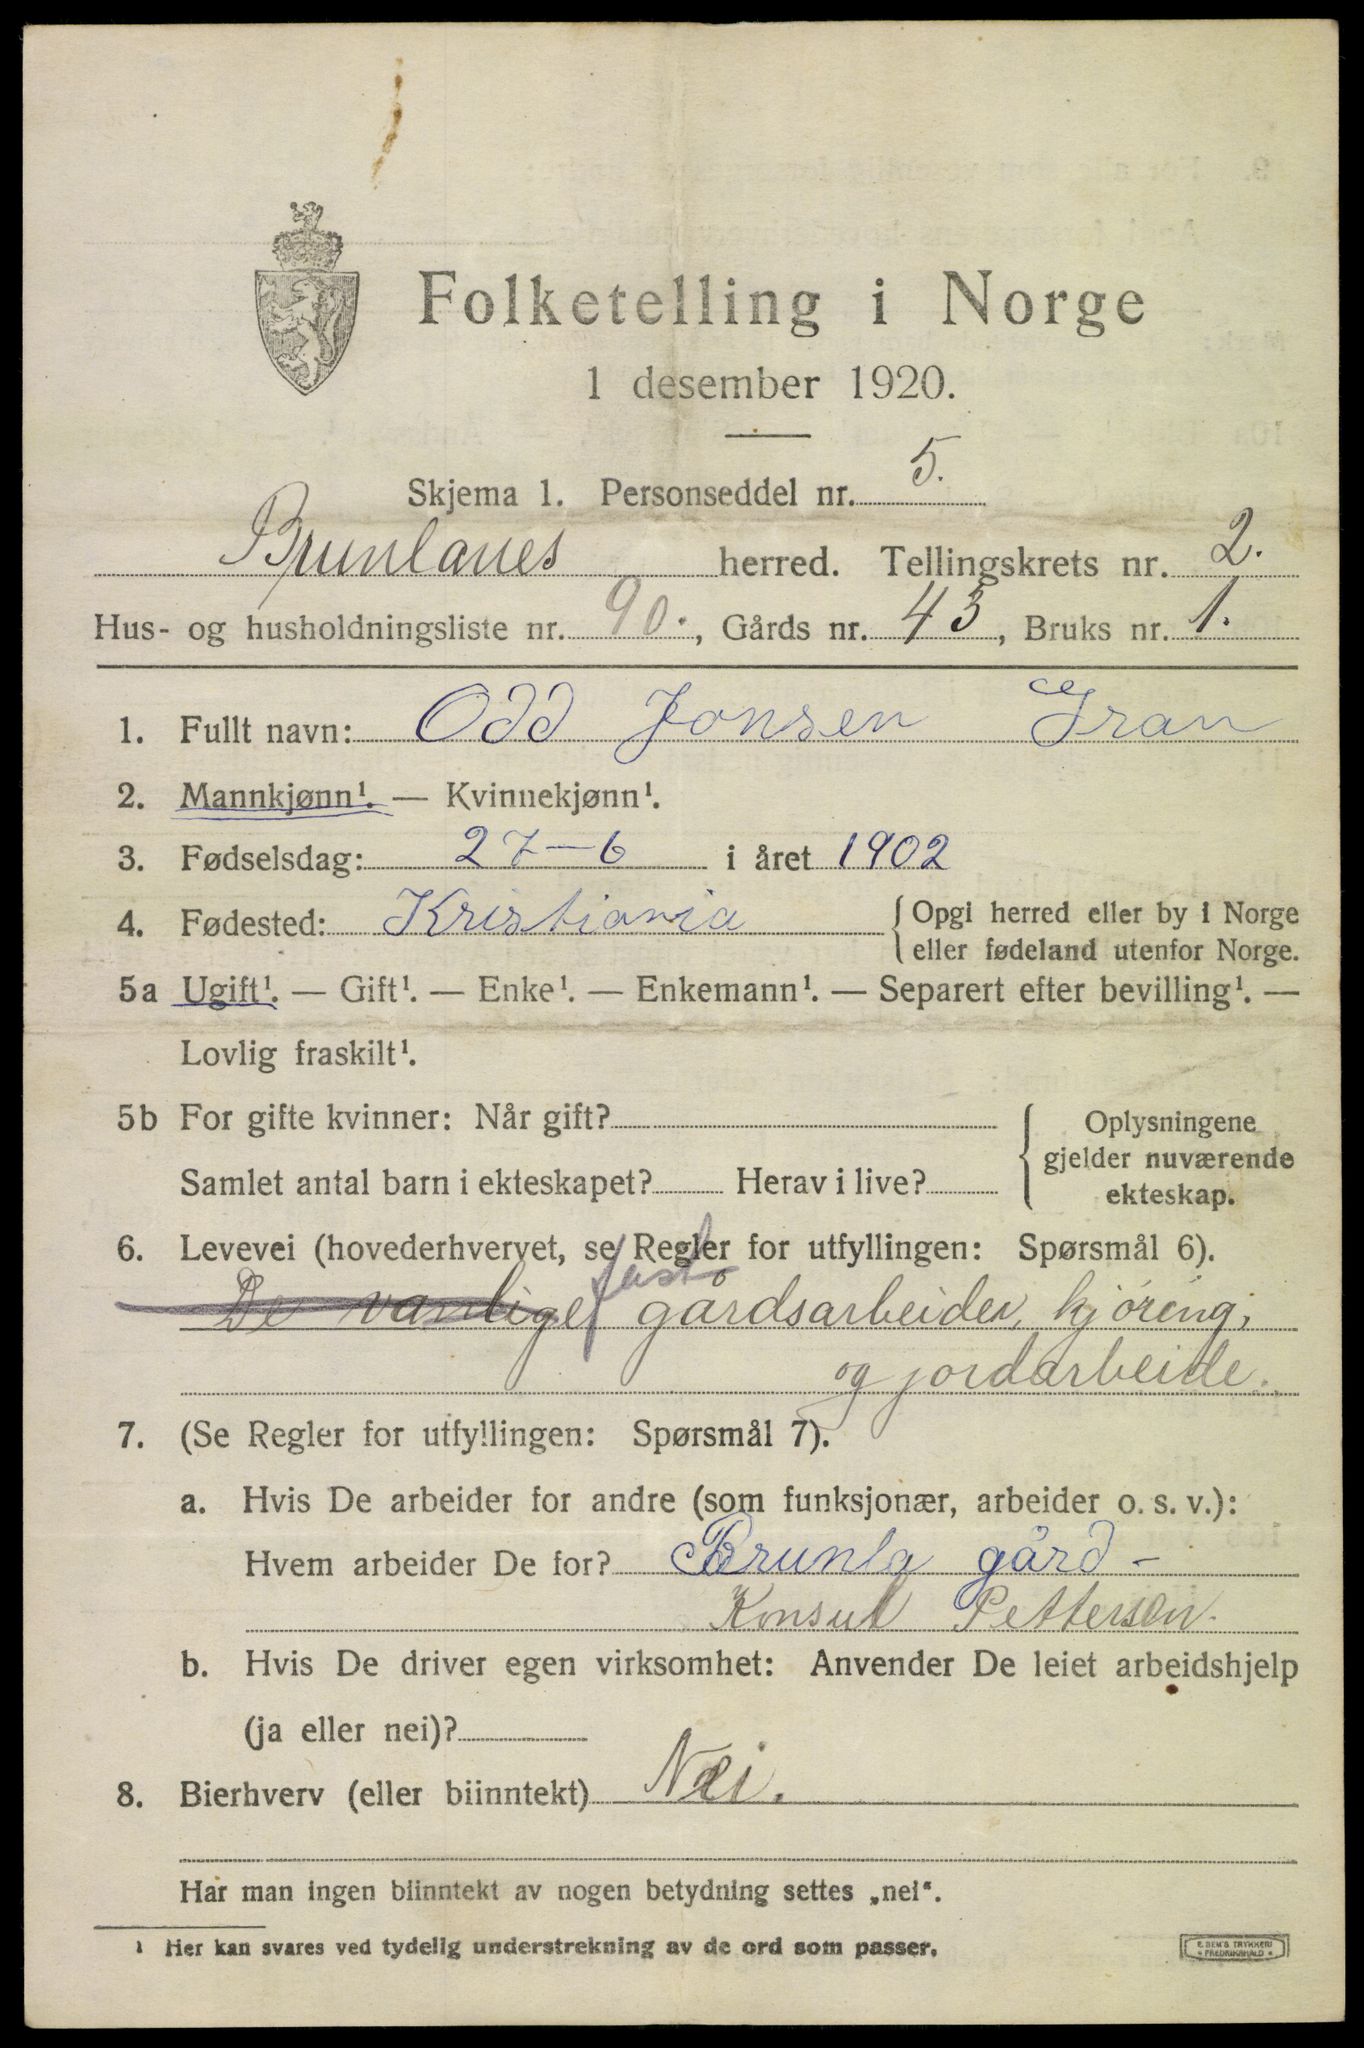 Folketelling i Norge
1 desember 1920.
Skjema 1. Personseddel nr. 5.
Brunlanes herred. Tellingskrets nr. 2.
Hus- og husholdningsliste nr. 90., Gårds nr. 43, Bruks nr. 1.
1. Fullt navn: Odd Jonsen Gran
2. Mannkjønn¹. — Kvinnekjønn¹.
3. Fødselsdag: 27-6 i året 1902
4. Fødested: Kristiania { Opgi herred eller by i Norge
eller fødeland utenfor Norge.
5a Ugift¹. — Gift¹. — Enke¹. — Enkemann¹. — Separert efter bevilling¹. —
Lovlig fraskilt¹.
5b For gifte kvinner: Når gift? { Oplysningene
gjelder nuværende
Samlet antal barn i ekteskapet? Herav i live? ekteskap.
6. Levevei (hovederhvervet, se Regler for utfyllingen: Spørsmål 6).
fast
De vanlige gårdsarbeider, kjöring,
og jordarbeide.
7. (Se Regler for utfyllingen: Spørsmål 7).
a. Hvis De arbeider for andre (som funksjonær, arbeider o. s. v.):
Hvem arbeider De for? Brunla gård -
Konsul Pettersen.
b. Hvis De driver egen virksomhet: Anvender De leiet arbeidshjelp
(ja eller nei)?
8. Bierhverv (eller biinntekt) Nei.
Har man ingen biinntekt av nogen betydning settes „nei“.
¹ Her kan svares ved tydelig understrekning av de ord som passer.
E. SEM'S TRYKKERI
FREDRIKSHALD